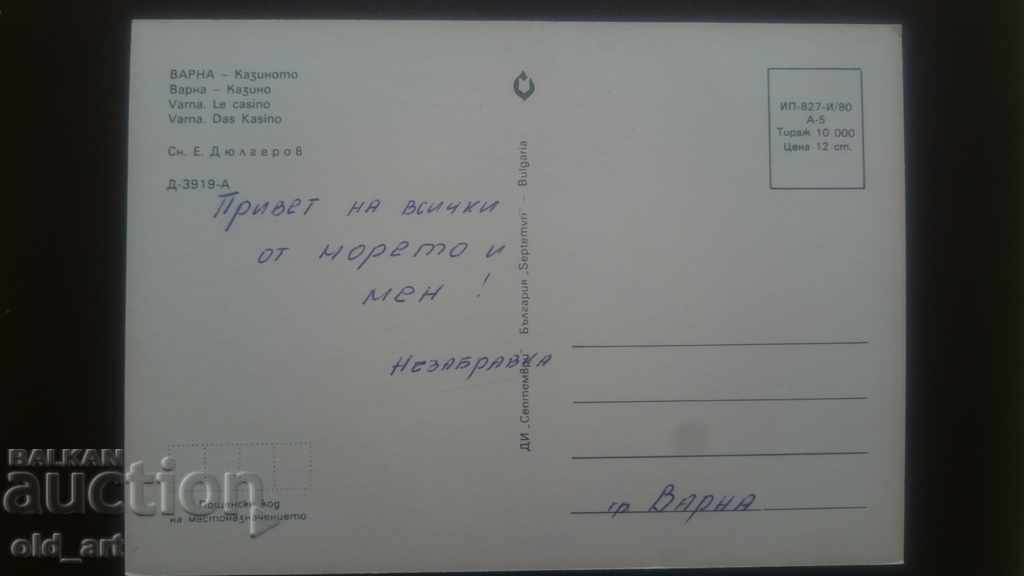 ВАРНА – Казиното
Варна – Казино
Varna. Le casino
Varna. Das Kasino
Сн. Е. Дюлгеров
Д-3919-А
Привет на всички
от морето и
мен !
Незабравка
ДИ „Септември" България „Septemvri" – Bulgaria
ИП-827-И/80
А-5
Тираж 10 000
Цена 12 ст.
гр Варна
Пощенски код
на местоназначението
BALKAN
auction
old_art